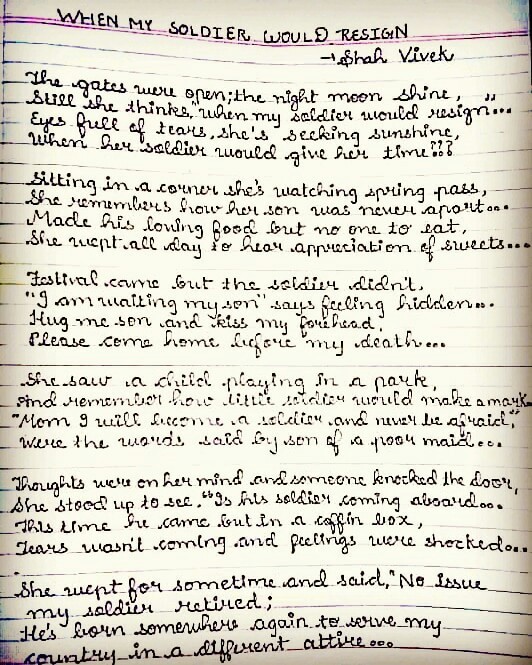 WHEN MY SOLDIER WOULD RESIGN
→ Shah Vivek
The gates were open; the night moon shine,
Still she thinks, "when my soldier would resign..."
Eyes full of tears, she's seeking sunshine,
When her soldier would give her time???
Sitting in a corner she's watching spring pass,
She remembers how her son was never apart...
Made his loving food but no one to eat,
She wept all day to hear appreciation of sweets...
Festival came but the soldier didn't,
"I am waiting my son" says feeling hidden...
Hug me son and kiss my forehead,
Please come home before my death...
She saw a child playing in a park,
And remember how little soldier would make a mark
"Mom I will become a soldier and never be afraid",
Were the words said by son of a poor maid...
Thoughts were on her mind and someone knocked the door,
She stood up to see, "Is his soldier coming aboard...
This time he came but in a coffin box,
Tears wasn't coming and feelings were shocked...
She wept for sometime and said, "No issue
my soldier retired;
He's born somewhere again to serve my
country in a different attire...